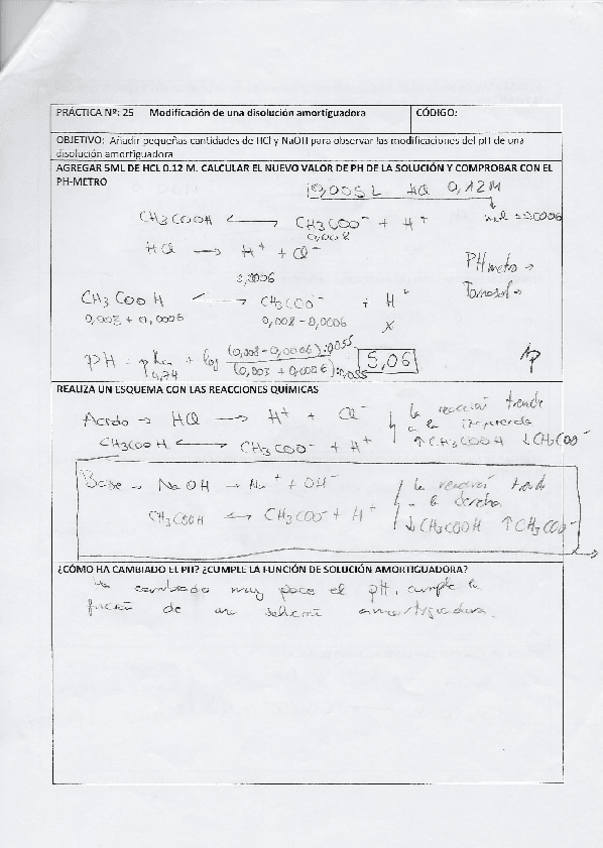 PRÁCTICA Nº: 25 Modificación de una disolución amortiguadora CÓDIGO:
OBJETIVO: Añadir pequeñas cantidades de HCl y NaOH para observar las modificaciones del pH de una
disolución amortiguadora
AGREGAR 5ML DE HCL 0.12 M. CALCULAR EL NUEVO VALOR DE PH DE LA SOLUCIÓN Y COMPROBAR CON EL
PH-METRO
0,005 L HCl 0,12 M
CH3COOH ⟷ CH3COO⁻ + H⁺ mol = 0,0006
0,008
HCl → H⁺ + Cl⁻
0,0006
PH metro →
Tornasol →
CH3COOH ⟷ CH3COO⁻ + H⁺
0,003 + 0,0006 0,008 - 0,0006 x
PH = pKa + log (0,008 - 0,0006):0,055 / (0,003 + 0,0006):0,055 5,06
4,74
REALIZA UN ESQUEMA CON LAS REACCIONES QUÍMICAS
Acido → HCl → H⁺ + Cl⁻ la reacción tiende
a la izquierda
CH3COOH ⟷ CH3COO⁻ + H⁺ ↑CH3COOH ↓CH3COO⁻
Base → NaOH → Na⁺ + OH⁻ la reacción tiende
a la derecha
CH3COOH ⟷ CH3COO⁻ + H⁺ ↓CH3COOH ↑CH3COO⁻
¿CÓMO HA CAMBIADO EL PH? ¿CUMPLE LA FUNCIÓN DE SOLUCIÓN AMORTIGUADORA?
Ha cambiado muy poco el pH, cumple la
función de una solución amortiguadora.